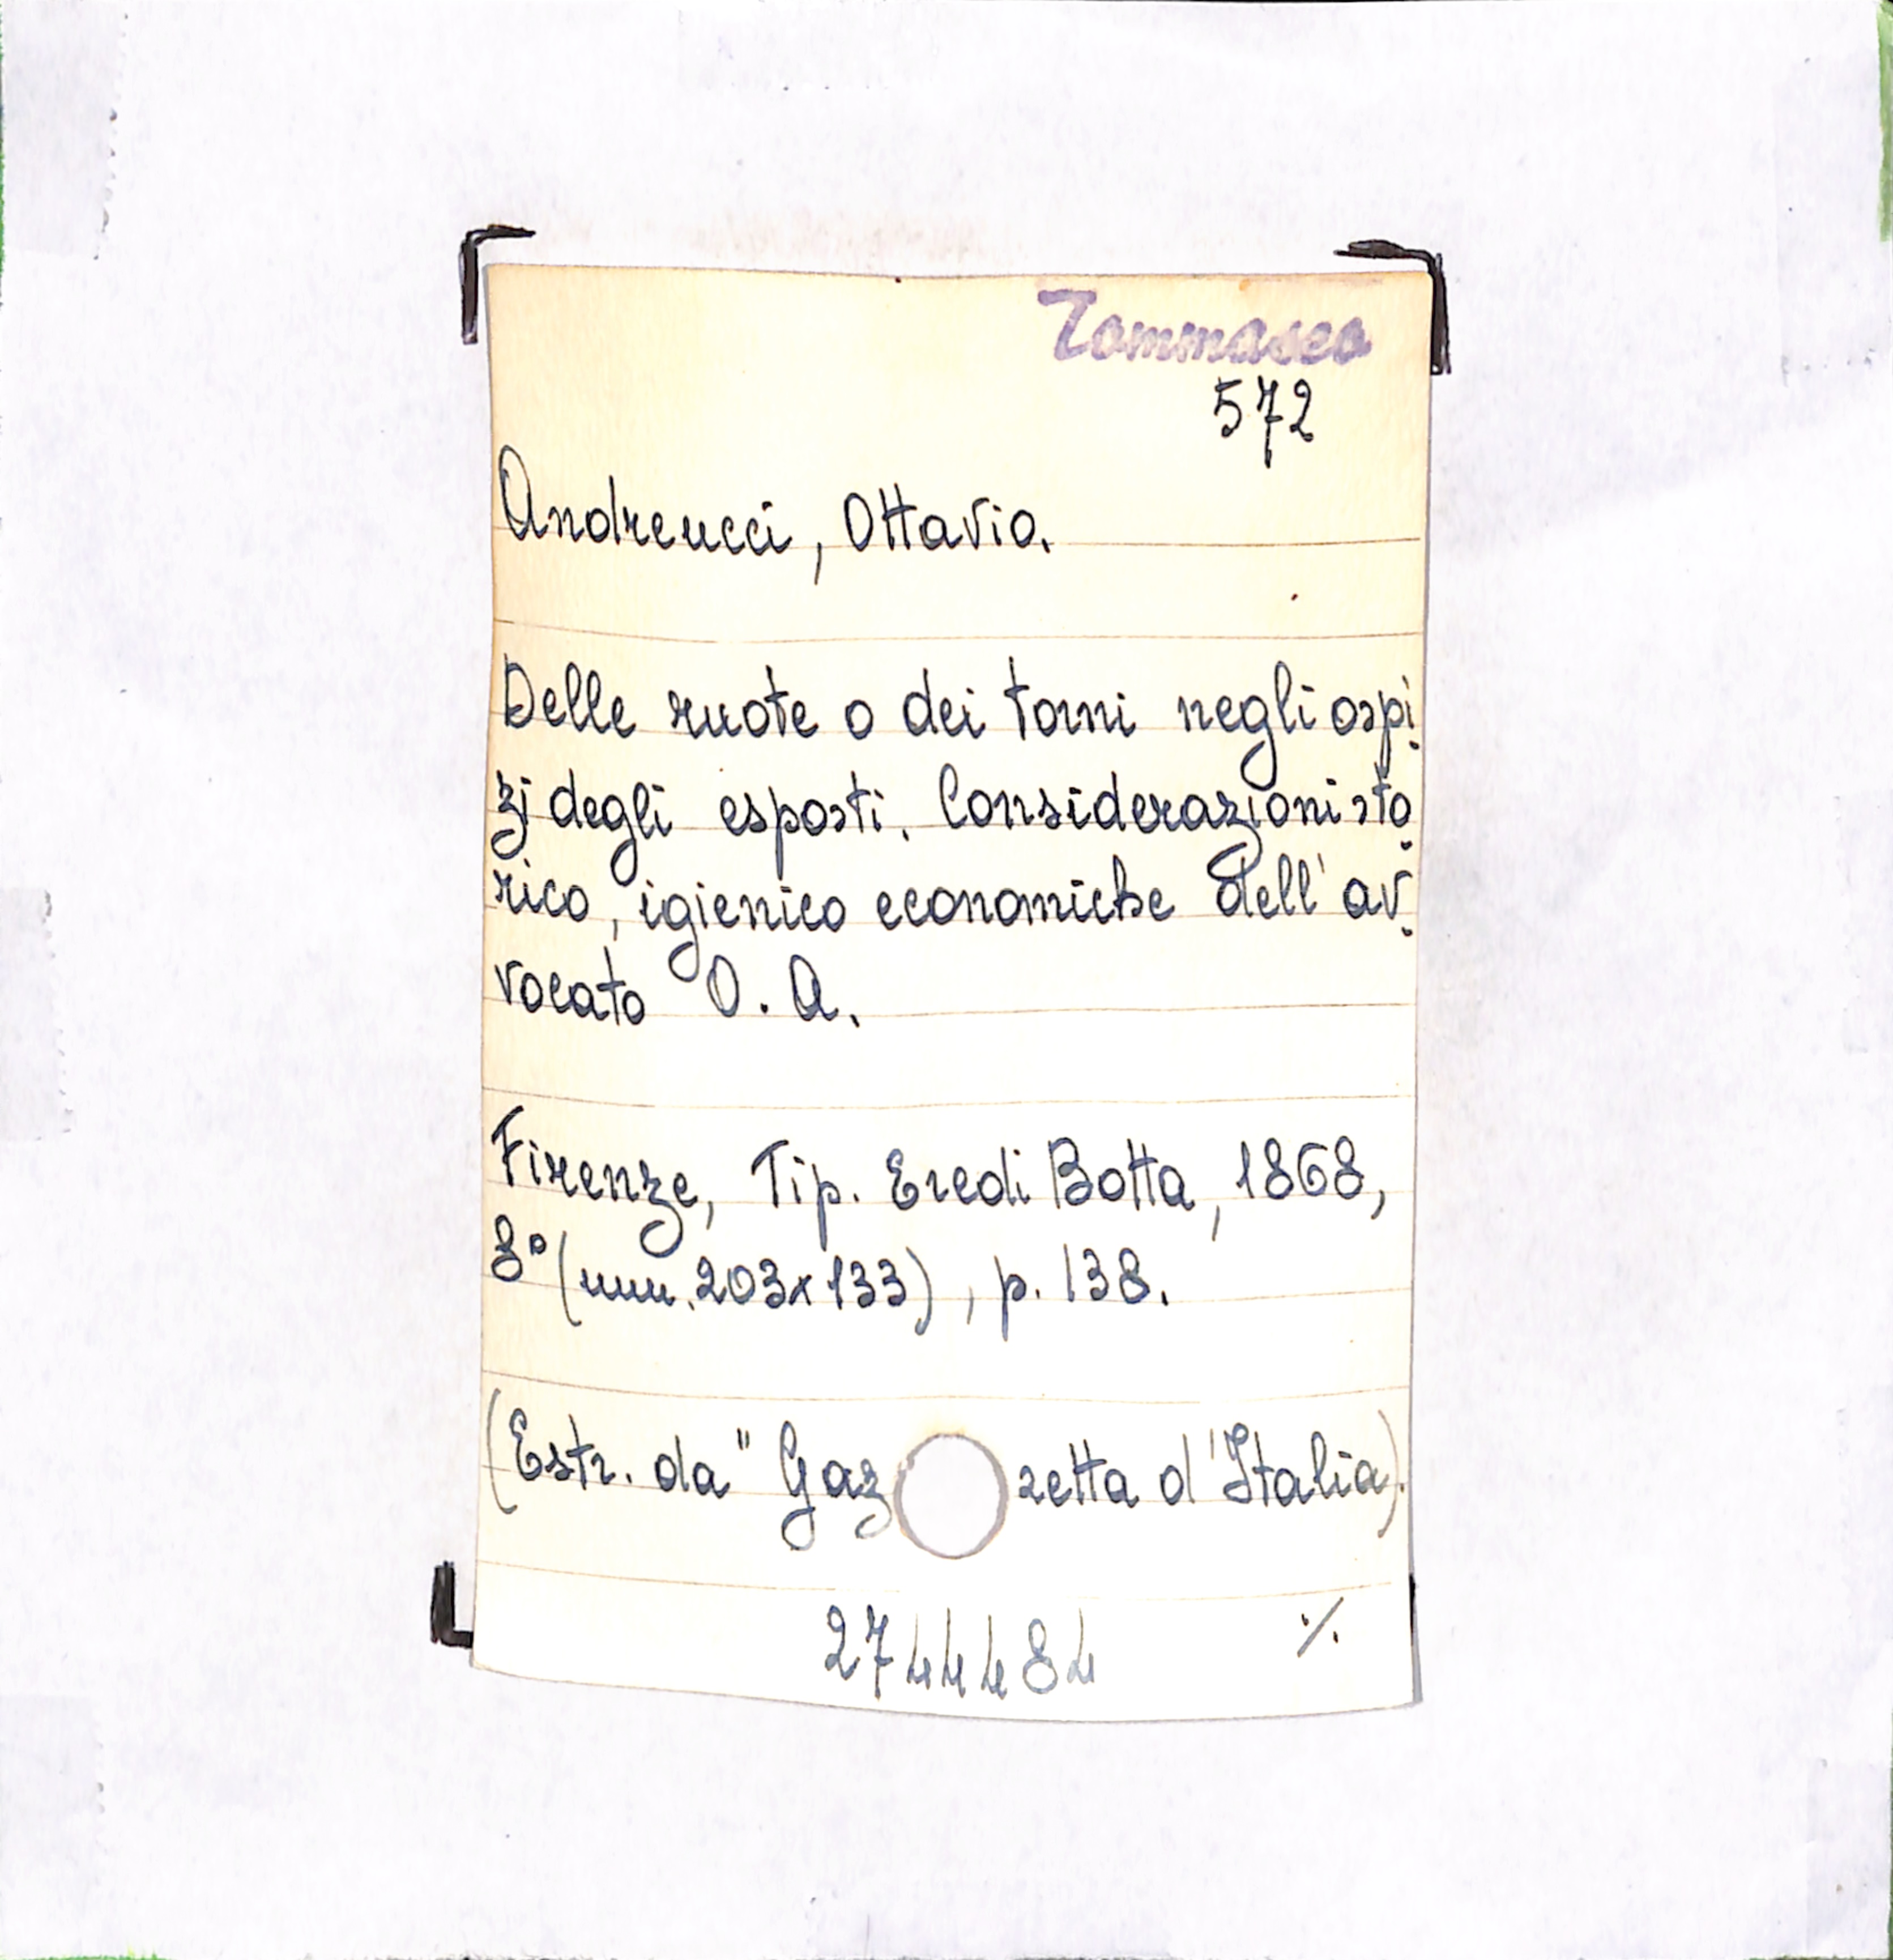 Tommaseo
572
Andreucci, Ottavio.
Delle ruote o dei torni negli ospi
zj degli esposti. Considerazioni sto
rico, igienico economiche dell'av
vocato O. A.
Firenze, Tip. Eredi Botta, 1868,
8° (mm. 203x133), p. 138.
(Estr. da "Gaz zetta d'Italia).
2744484 ./.